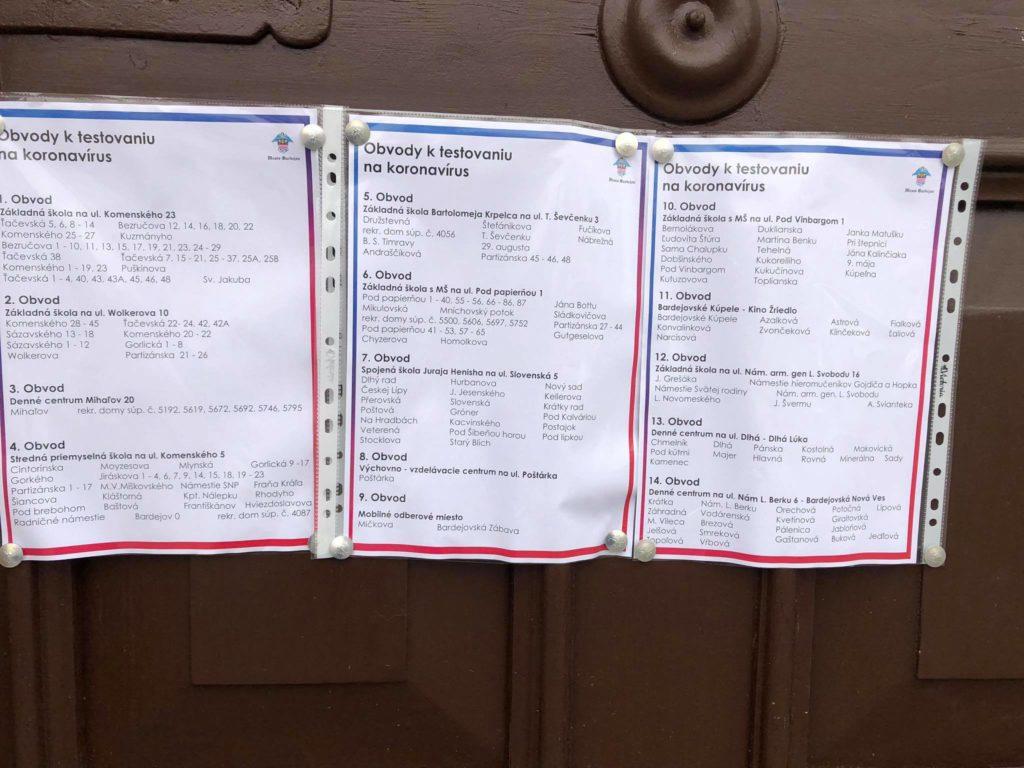 Obvody k testovaniu
na koronavírus
Mesto Bardejov
1. Obvod
Základná škola na ul. Komenského 23
Ťačevská 5, 6, 8 - 14 Bezručova 12, 14, 16, 18, 20, 22
Komenského 25 - 27 Kuzmányho
Bezručova 1 - 10, 11, 13, 15, 17, 19, 21, 23, 24 - 29
Ťačevská 38 Ťačevská 7, 15 - 21, 25 - 37, 25A, 25B
Komenského 1 - 19, 23 Puškinova
Ťačevská 1 - 4, 40, 43, 43A, 45, 46, 48 Sv. Jakuba
2. Obvod
Základná škola na ul. Wolkerova 10
Komenského 28 - 45 Ťačevská 22- 24, 42, 42A
Sázavského 13 - 18 Komenského 20 - 22
Sázavského 1 - 12 Gorlická 1 - 8
Wolkerova Partizánska 21 - 26
3. Obvod
Denné centrum Mihaľov 20
Mihaľov rekr. domy súp. č. 5192, 5619, 5672, 5692, 5746, 5795
4. Obvod
Stredná priemyselná škola na ul. Komenského 5
Cintorínska Moyzesova Mlynská Gorlická 9 -17
Gorkého Jiráskova 1 - 4, 6, 7, 9, 14, 15, 18, 19 - 23
Partizánska 1 - 17 M.V.Miškovského Námestie SNP Fraňa Kráľa
Šiancova Kláštorná Kpt. Nálepku Rhodyho
Pod brebohom Baštová Františkánov Hviezdoslavova
Radničné námestie Bardejov 0 rekr. dom súp. č. 4087
Obvody k testovaniu
na koronavírus
Mesto Bardejov
5. Obvod
Základná škola Bartolomeja Krpelca na ul. T. Ševčenku 3
Družstevná Štefánikova Fučíkova
rekr. dom súp. č. 4056 T. Ševčenku Nábrežná
B. S. Timravy 29. augusta
Andraščíková Partizánska 45 - 46, 48
6. Obvod
Základná škola s MŠ na ul. Pod papierňou 1
Pod papierňou 1 - 40, 55 - 56, 66 - 86, 87 Jána Bottu
Mikulovská Mníchovský potok Sládkovičova
rekr. domy súp. č. 5500, 5606, 5697, 5752 Partizánska 27 - 44
Pod papierňou 41 - 53, 57 - 65 Gutgeselova
Chyzerova Homolkova
7. Obvod
Spojená škola Juraja Henisha na ul. Slovenská 5
Dlhý rad Hurbanova Nový sad
Českej Lípy J. Jesenského Kellerova
Přerovská Slovenská Krátky rad
Poštová Gróner Pod Kalváriou
Na Hradbách Kacvinského Postajok
Veterená Pod Šibeňou horou Pod lipkou
Stocklova Starý Blich
8. Obvod
Výchovno - vzdelávacie centrum na ul. Poštárka
Poštárka
9. Obvod
Mobilné odberové miesto
Mičkova Bardejovská Zábava
Obvody k testovaniu
na koronavírus
Mesto Bardejov
10. Obvod
Základná škola s MŠ na ul. Pod Vinbargom 1
Bernolákova Duklianska Janka Matušku
Ľudovíta Štúra Martina Benku Pri štepnici
Sama Chalupku Tehelná Jána Kalinčiaka
Dobšinského Kukorelliho 9. mája
Pod Vinbargom Kukučínova Kúpeľna
Kutuzovova Toplianska
11. Obvod
Bardejovské Kúpele - Kino Žriedlo
Bardejovské Kúpele Azalková Astrová Fialková
Konvalinková Zvončeková Klinčeková Ľaliová
Narcisová
12. Obvod
Základná škola na ul. Nám. arm. gen L. Svobodu 16
J. Grešáka Námestie hieromučeníkov Gojdiča a Hopka
Námestie Svätej rodiny Nám. arm. gen L. Svobodu
L. Novomeského J. Švermu A. Svianteka
13. Obvod
Denné centrum na ul. Dlhá - Dlhá Lúka
Chmelník Dlhá Pánska Kostolná Makovická
Pod kútmi Majer Hlavná Rovná Minerálna Sady
Kamenec
14. Obvod
Denné centrum na ul. Nám L. Berku 6 - Bardejovská Nová Ves
Krátka Nám. L. Berku Orechová Potočná Lipová
Záhradná Vodárenská Kvetinová Giraltovská
M. Vileca Brezová Pálenica Jabloňová
Jelšová Smreková Gaštanová Buková Jedľová
Topoľová Vŕbová